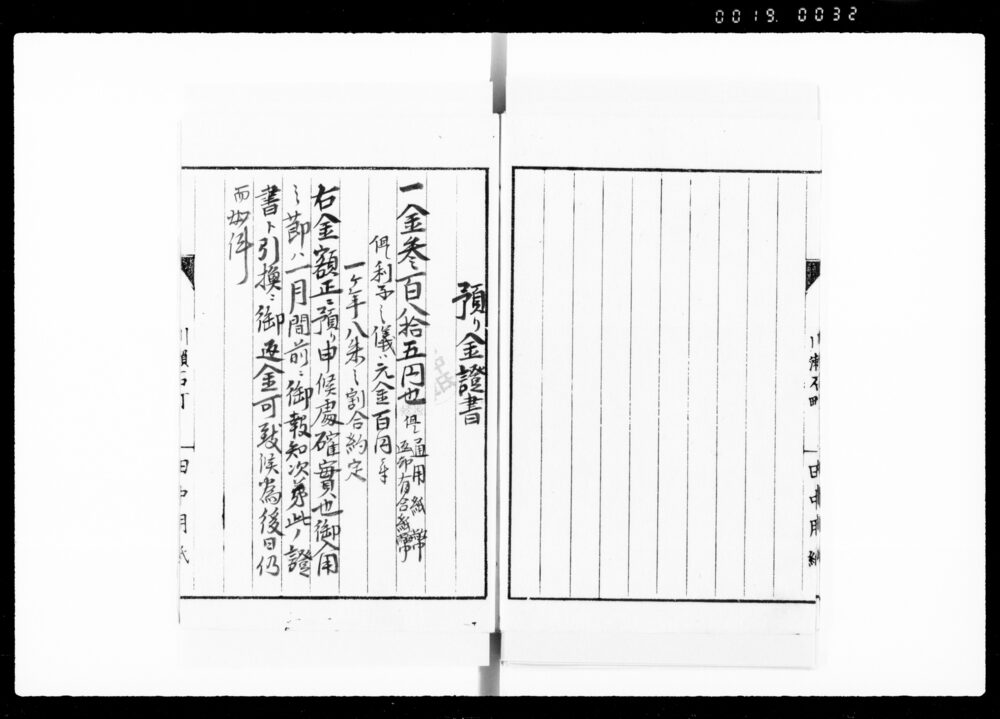 0019. 0032
預り金證書
一金叄百八拾五円也
但通用紙幣
有合紙幣
但利子之儀ハ元金百円ニ
一ヶ年八朱之割合約定
右金額正ニ預り申候處確實也御入用
之節ハ一月間前ニ御報知次第此ノ證
書ト引換ニ御返金可致候為後日仍
而如件
川瀬石町
田中用紙